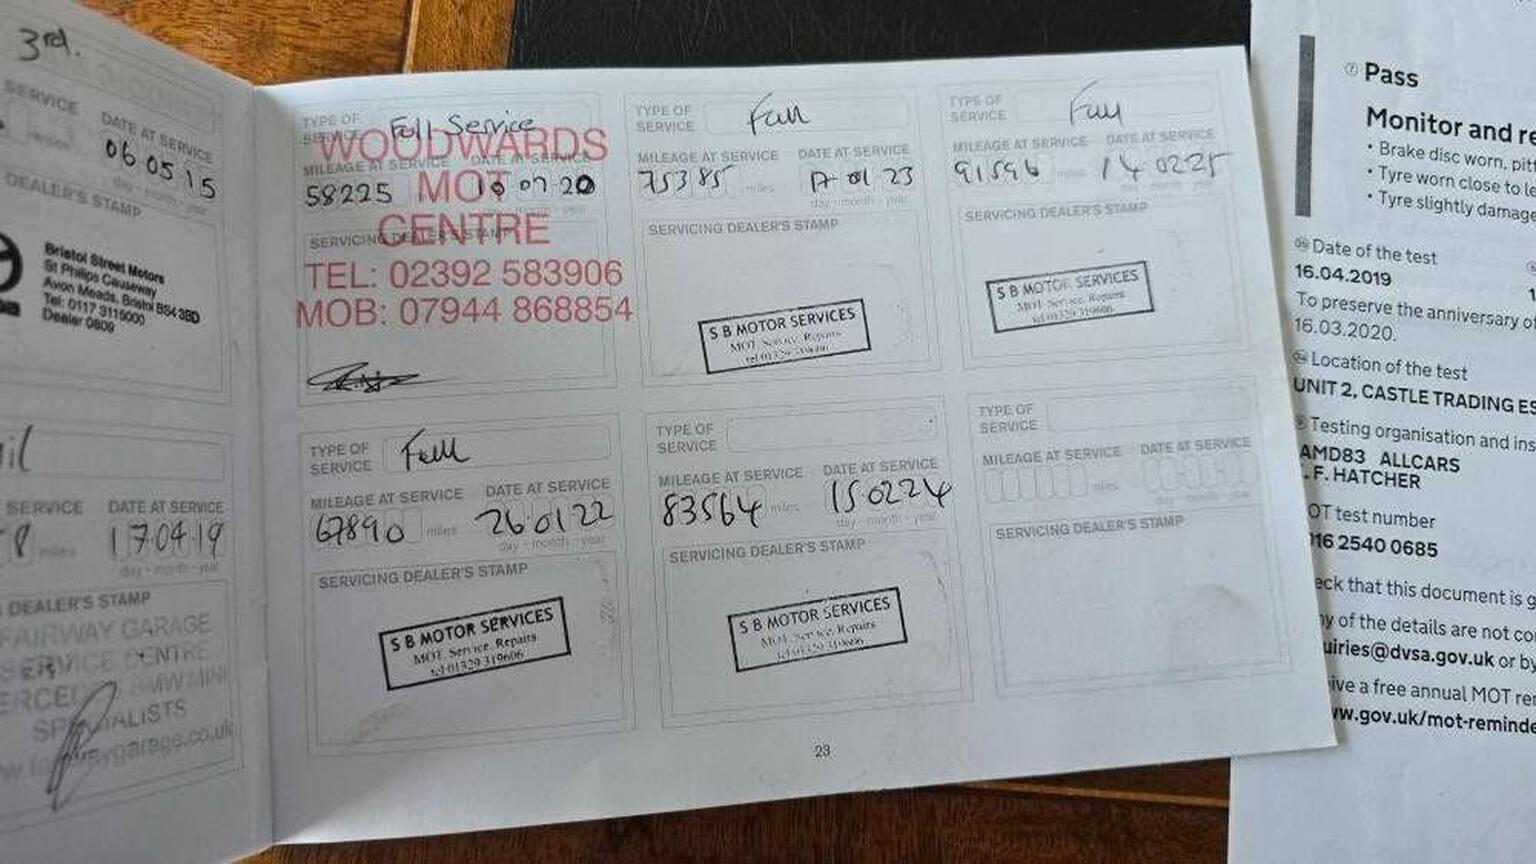 3rd.
SERVICE
DATE AT SERVICE
miles
06 05 15
day - month - year
DEALER'S STAMP
Bristol Street Motors
St Philips Causeway
Avon Meads, Bristol BS4 3BD
Tel: 0117 3115000
Dealer 0809
SERVICE
DATE AT SERVICE
8 miles
17 04 19
day - month - year
DEALER'S STAMP
FAIRWAY GARAGE
SERVICE CENTRE
BMW MINI
SPECIALISTS
TYPE OF SERVICE
Full Service
WOODWARDS
MILEAGE AT SERVICE
DATE AT SERVICE
58225
MOT
07 20
CENTRE
SERVICING DEALER'S STAMP
TEL: 02392 583906
MOB: 07944 868854
TYPE OF
SERVICE
Full
MILEAGE AT SERVICE
DATE AT SERVICE
75385 miles
17 01 23
day - month - year
SERVICING DEALER'S STAMP
S B MOTOR SERVICES
MOT. Service. Repairs
tel 01329 319606
TYPE OF
SERVICE
Full
MILEAGE AT SERVICE
DATE AT SERVICE
91596 miles
14 02 25
day - month - year
SERVICING DEALER'S STAMP
S B MOTOR SERVICES
MOT. Service. Repairs
tel 01329 319606
TYPE OF
SERVICE
Full
MILEAGE AT SERVICE
DATE AT SERVICE
67890 miles
26 01 22
day - month - year
SERVICING DEALER'S STAMP
S B MOTOR SERVICES
MOT. Service. Repairs
tel 01329 319606
TYPE OF
SERVICE
MILEAGE AT SERVICE
DATE AT SERVICE
83564 miles
15 02 24
day - month - year
SERVICING DEALER'S STAMP
S B MOTOR SERVICES
MOT. Service. Repairs
tel 01329 319606
TYPE OF
SERVICE
MILEAGE AT SERVICE
DATE AT SERVICE
miles
day - month - year
SERVICING DEALER'S STAMP
23
Pass
Monitor and re
• Brake disc worn, pit
• Tyre worn close to le
• Tyre slightly damage
Date of the test
16.04.2019
To preserve the anniversary o
16.03.2020.
Location of the test
UNIT 2, CASTLE TRADING ES
Testing organisation and ins
AMD83 ALLCARS
. F. HATCHER
OT test number
16 2540 0685
eck that this document is g
ny of the details are not co
uiries@dvsa.gov.uk or by
ive a free annual MOT re
w.gov.uk/mot-reminde